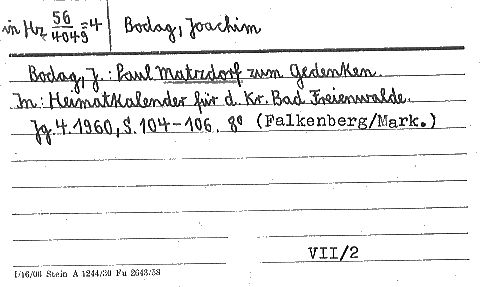 in Hz 56/4049=4 Bodag, Joachim
Bodag, J.: Paul Matzdorf zum Gedenken.
In: Heimatkalender für d. Kr. Bad Freienwalde.
Jg. 4. 1960, S. 104-106. 8° (Falkenberg/Mark.)
VII/2
I/16/06 Stein A 1244/30 Fu 2643/58